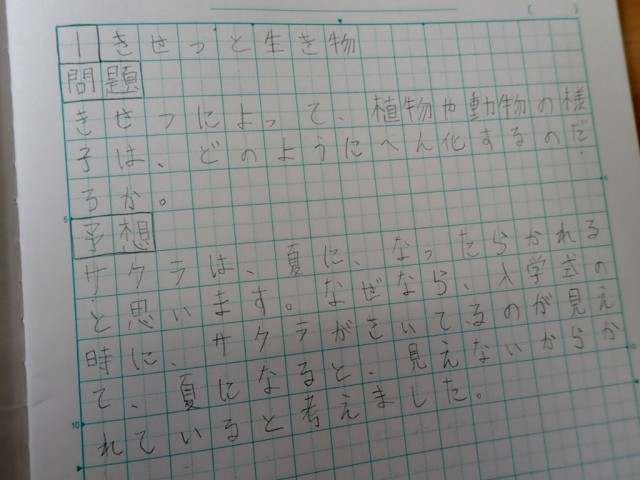 1 きせつと生き物
問題
きせつによって、植物や動物の様
子は、どのようにへん化するのだ
ろか。
予想
サクラは、夏に、なったらかれる
と思います。なぜなら、入学式の
時に、サクラがさいてるのが見え
て、夏になると、見えないからか
れていると考えました。